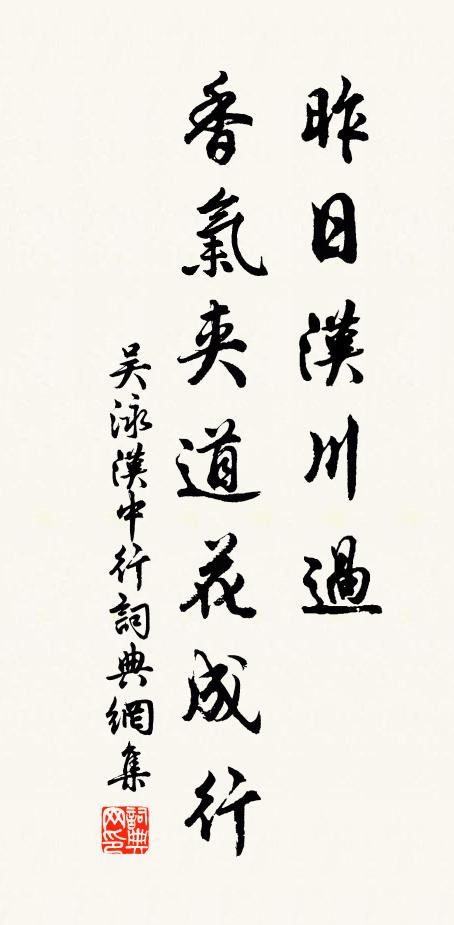 昨日漢川過
香氣夾道花成行
吴泳漢中行詞典網集
詞典网印